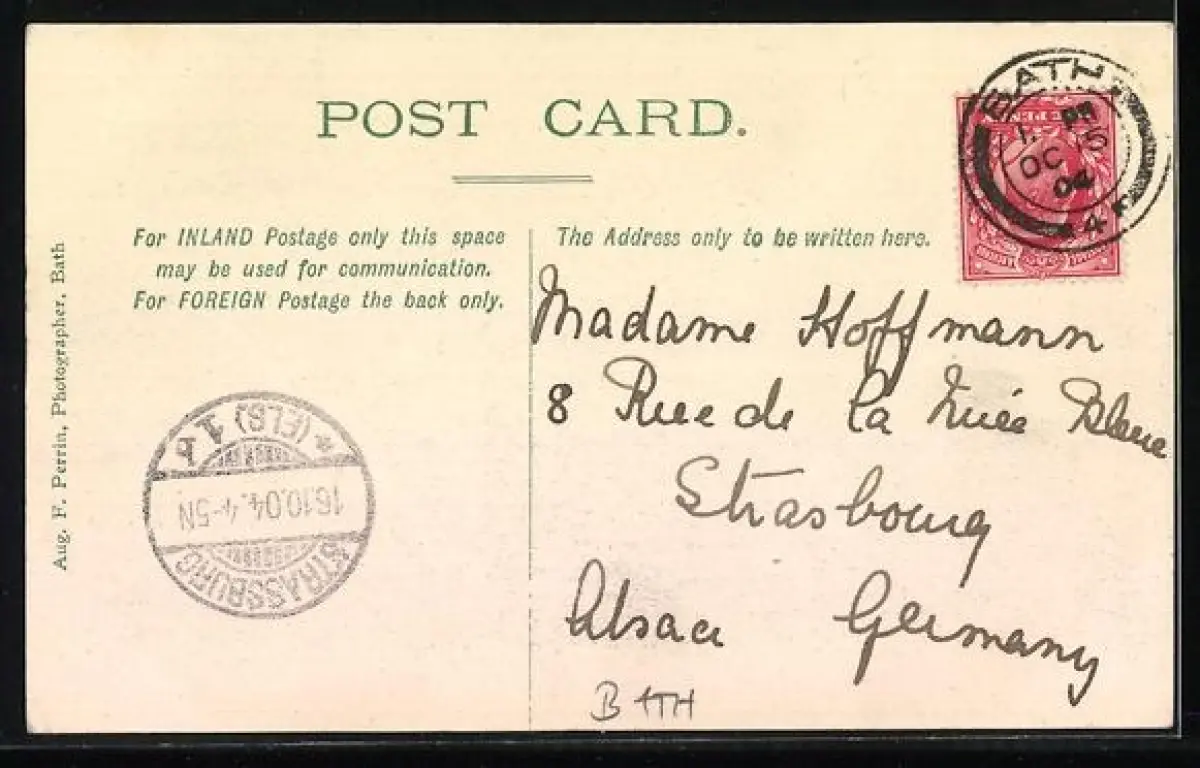 POST CARD.
For INLAND Postage only this space
may be used for communication.
For FOREIGN Postage the back only.
The Address only to be written here.
Aug. F. Perrin, Photographer, Bath
BATH
OC 15
04
Madame Hoffmann
8 Rue de la Nuée Bleue
Strasbourg
Alsace Germany
STRASSBURG
16.10.04. 4-5N
* (ELS) 1b
BATH